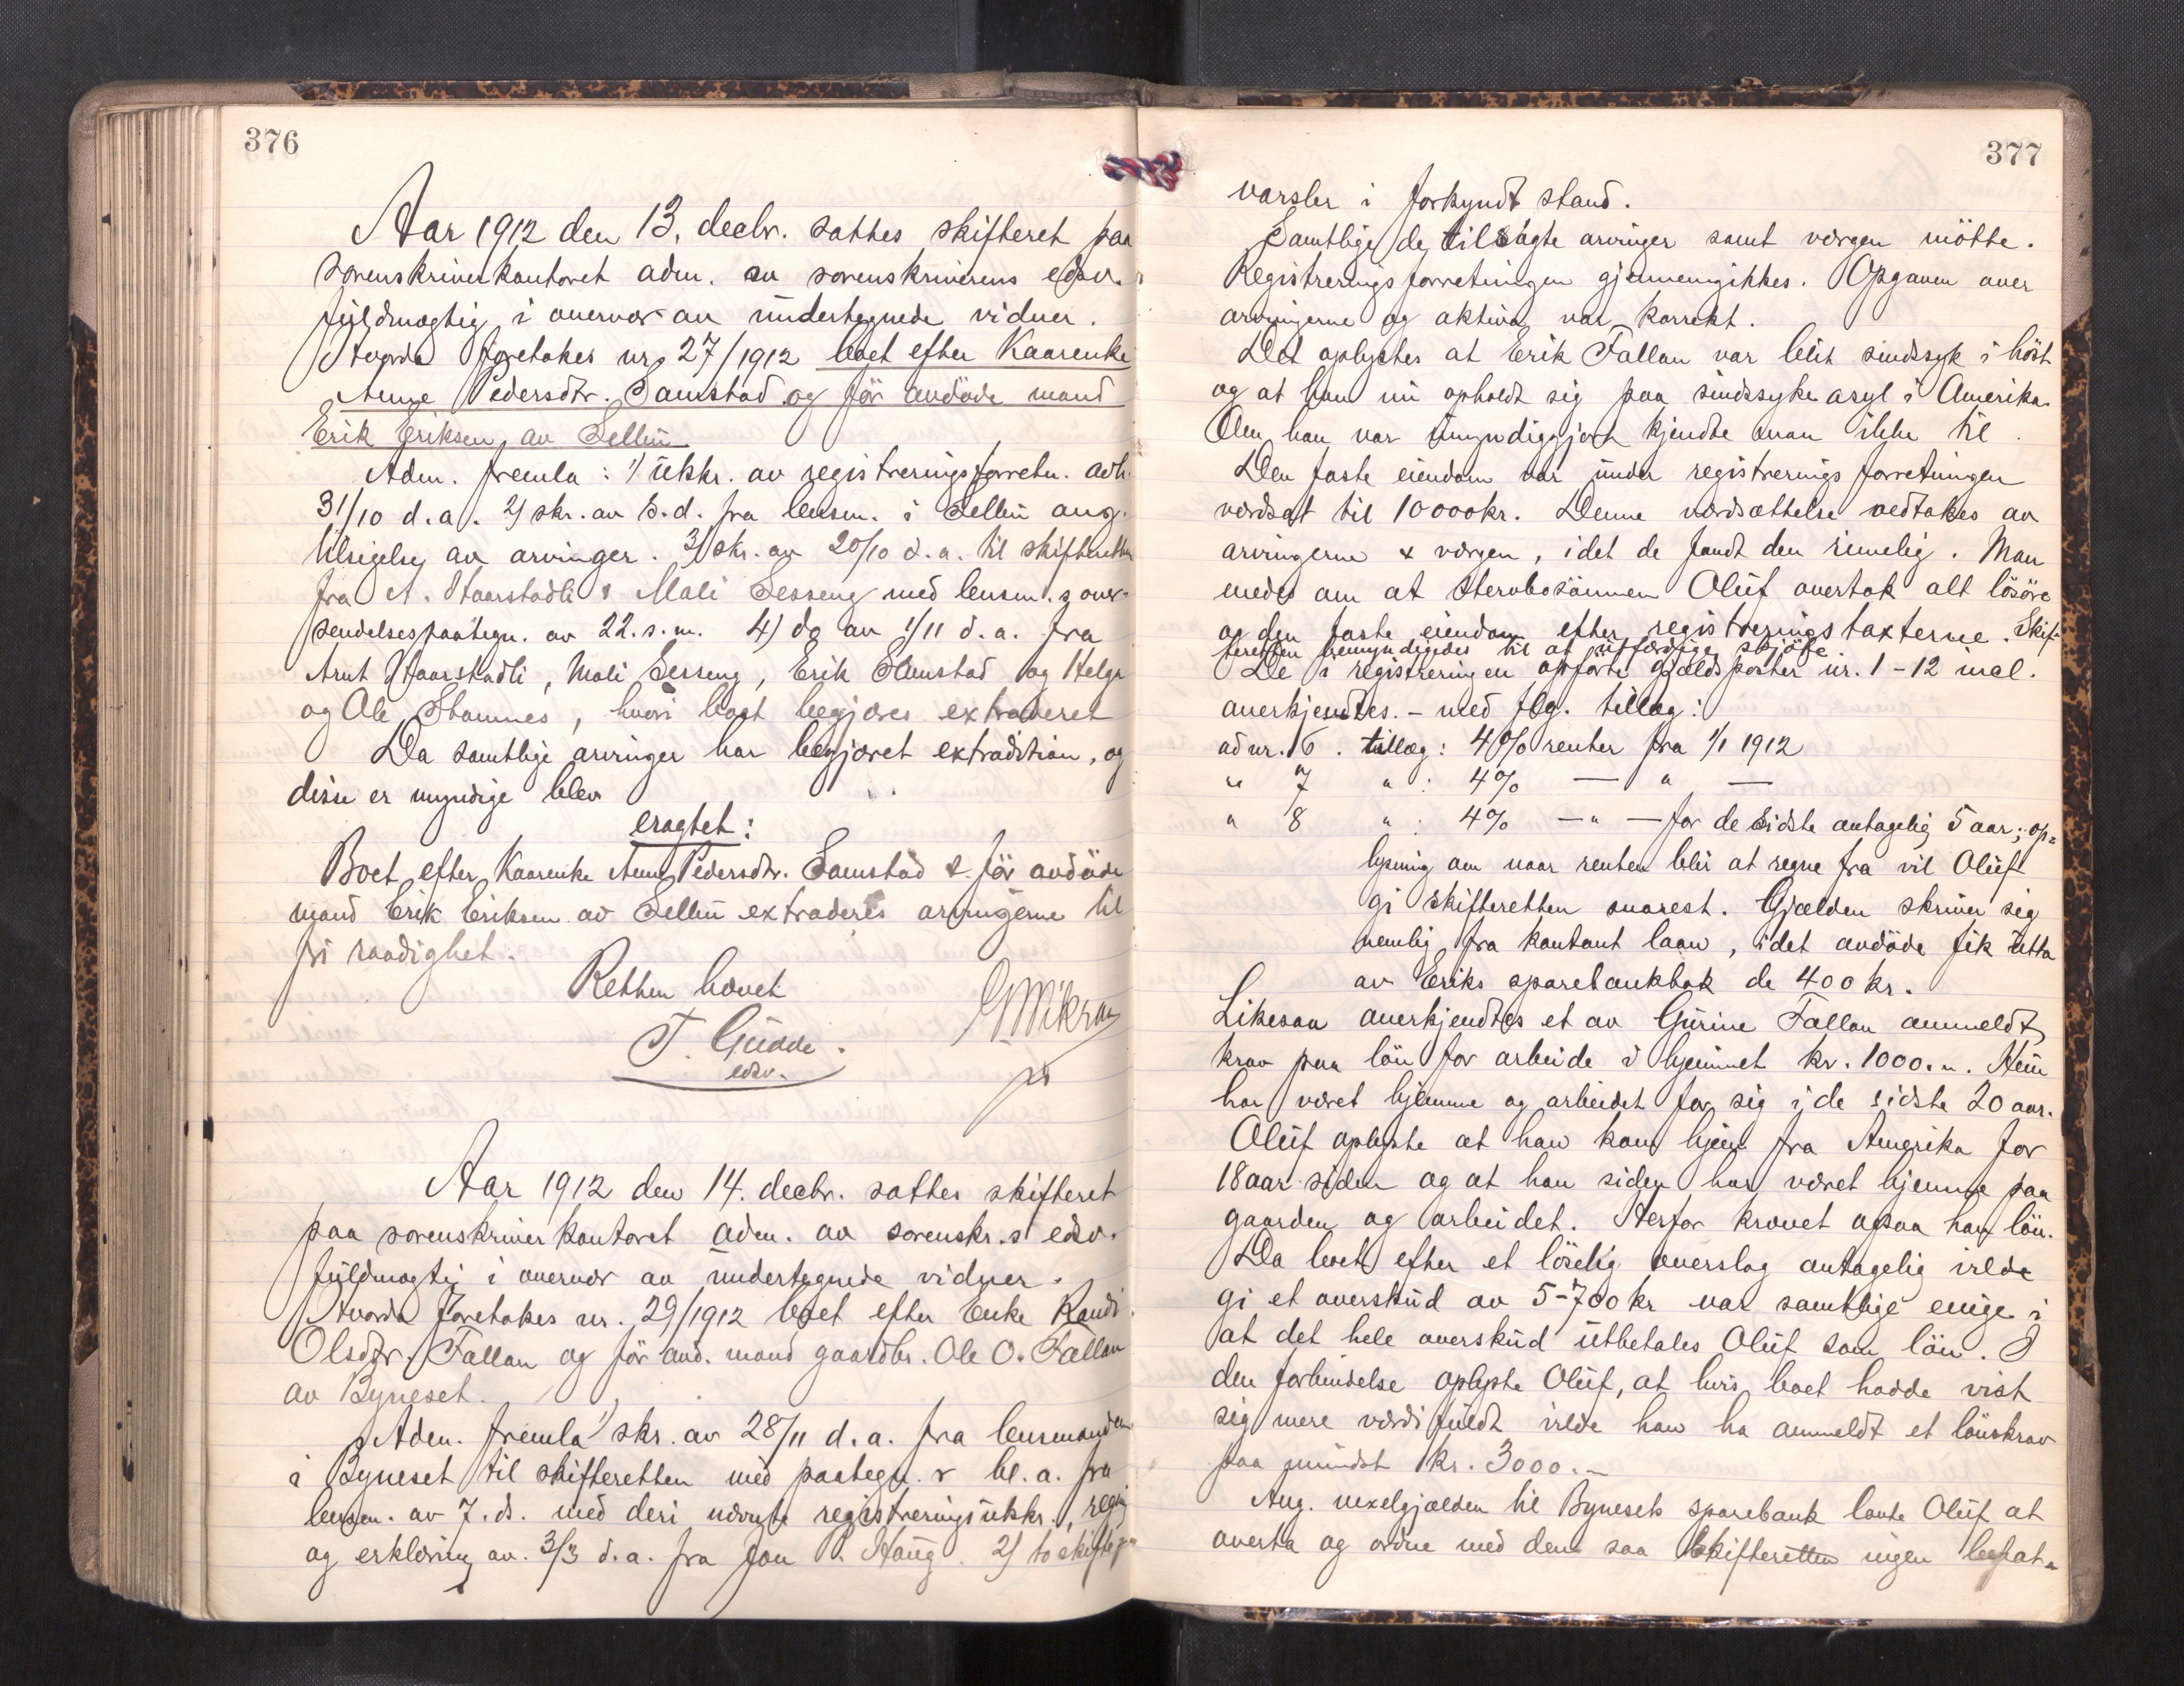 376
Aar 1912 den 13. decbr. sattes skifteret paa
sorenskriverkontoret adm. av sorenskriverens edsv.
fuldmægtig i overvær av undertegnede vidner.
Hvorda foretakes nr. 27/1912 boet efter Kaarenke
Anne Pedersdtr. Samstad og før avdøde mand
Erik Eriksen av Selbu
Adm. fremla: 1/ utskr. av registreringsforretn. avh.
31/10 d.a. 2/ skr. av s.d. fra lensm. i Selbu ang.
tilsigelse av arvinger. 3/ skr. av 20/10 d.a. til skifteretten
fra A. Haarstadli & Mali Sesseng med lensm.s over-
sendelsespaategn. av 22. s.m. 4) do av 1/11 d.a. fra
Arnt Haarstadli, Mali Sesseng, Erik Samstad og Helge
og Ole Stamnes, hvori boet begjæres extraderet
Da samtlige arvinger har begjæret extradition, og
disse er myndige blev
eragtet:
Boet efter Kaarenke Anne Pedersdtr. Samstad & før avdøde
mand Erik Eriksen av Selbu extraderes arvingerne til
fri raadighet.
Retten hævet
T. Gudde
edsv.
Aar 1912 den 14. decbr. sattes skifteret
paa sorenskriverkontoret adm. av sorenskr.s edsv.
fuldmægtig i overvær av undertegnede vidner.
Hvorda foretakes nr. 29/1912 boet efter Enke Randi
Olsdtr. Fallan og før avd. mand gaardbr. Ole O. Fallan
av Byneset.
Adm. fremla 1) skr. av 28/11 d.a. fra lensmanden
i Byneset til skifteretten med paategn. bl.a. fra
lensm. av 7. ds. med deri nævnte registreringsutskr.,
og erklæring av 3/3 d.a. fra Jon P. Haug. 2/ to
377
varsler i forkyndt stand.
Samtlige de tilsagte arvinger samt værgen møtte.
Registreringsforretningen gjennemgikkes. Opgaven over
arvingerne og aktiva var korrekt.
Det oplystes at Erik Fallan var blit sindssyk i høst
og at han nu opholdt sig paa sindssykeasyl i Amerika.
Om han var umyndiggjort kjendte man ikke til.
Den faste eiendom var under registreringsforretningen
værdsat til 10000kr. Denne værdsættelse vedtokes av
arvingerne & værgen, idet de fandt den rimelig. Man
enedes om at sterbosønnen Oluf overtok alt løsøre
og den faste eiendom efter registreringstaxterne. Skif-
teretten bemyndigedes til at utfærdige skjøte.
De i registreringen opførte gjældsposter nr. 1-12 incl.
anerkjendtes. - med flg. tillæg:
ad nr. 6. tillæg: 4% renter fra 1/1 1912
" 7 " : 4% — " —
" 8 " : 4% — " — for de sidste antagelig 5 aar; op-
lysning om naar renten blir at regne fra vil Oluf
gi skifteretten snarest. Gjælden skriver sig
nemlig fra kontant laan, idet avdøde fik utta
av Eriks sparebankbok de 400 kr.
Likesaa anerkjendtes et av Gurine Fallan anmeldt
krav paa løn for arbeide i hjemmet kr. 1000.-. Hun
har været hjemme og arbeidet for sig i de sidste 20 aar.
Oluf oplyste at han kom hjem fra Amerika for
18 aar siden og at han siden har været hjemme paa
gaarden og arbeidet. Herfor krævet ogsaa han løn.
Da boet efter et løselig overslag antagelig vilde
gi et overskud av 5-700 kr var samtlige enige i
at det hele overskud utbetales Oluf som løn. I
den forbindelse oplyste Oluf, at hvis boet hadde vist
sig mere værdifuldt vilde han ha anmeldt et lønskrav
paa mindst kr. 3000.-
Ang. vexelgjælden til Bynesets sparebank lovte Oluf at
overta og ordne med den saa skifteretten ingen befat-